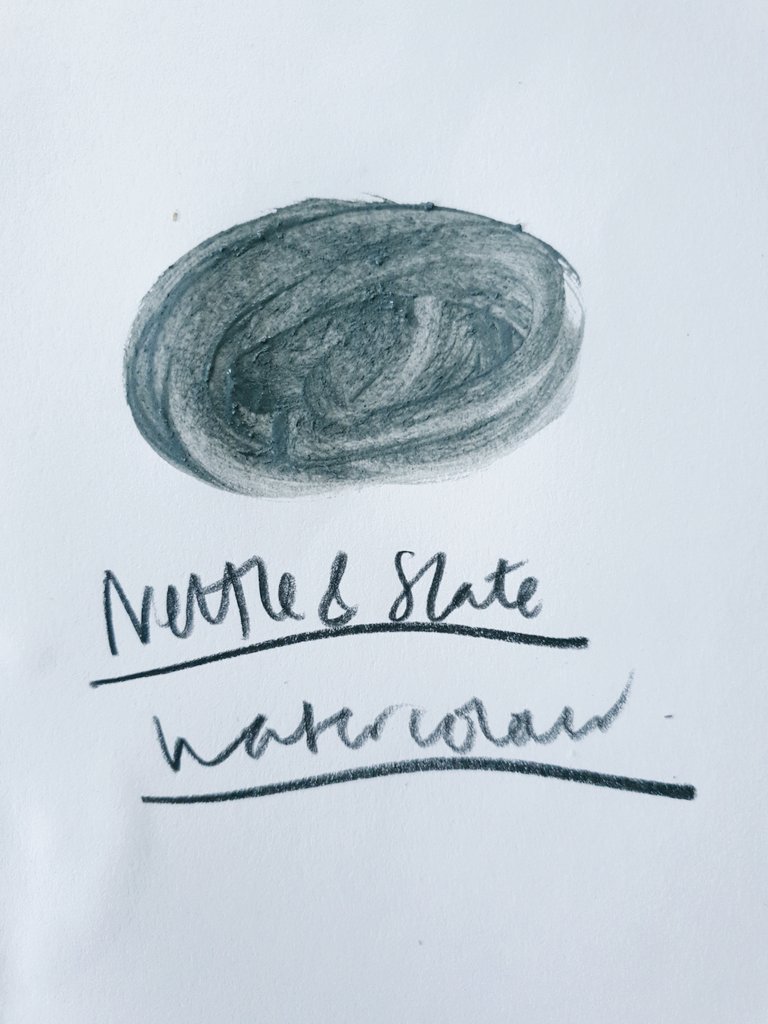 Nettle & Slate
Watercolour